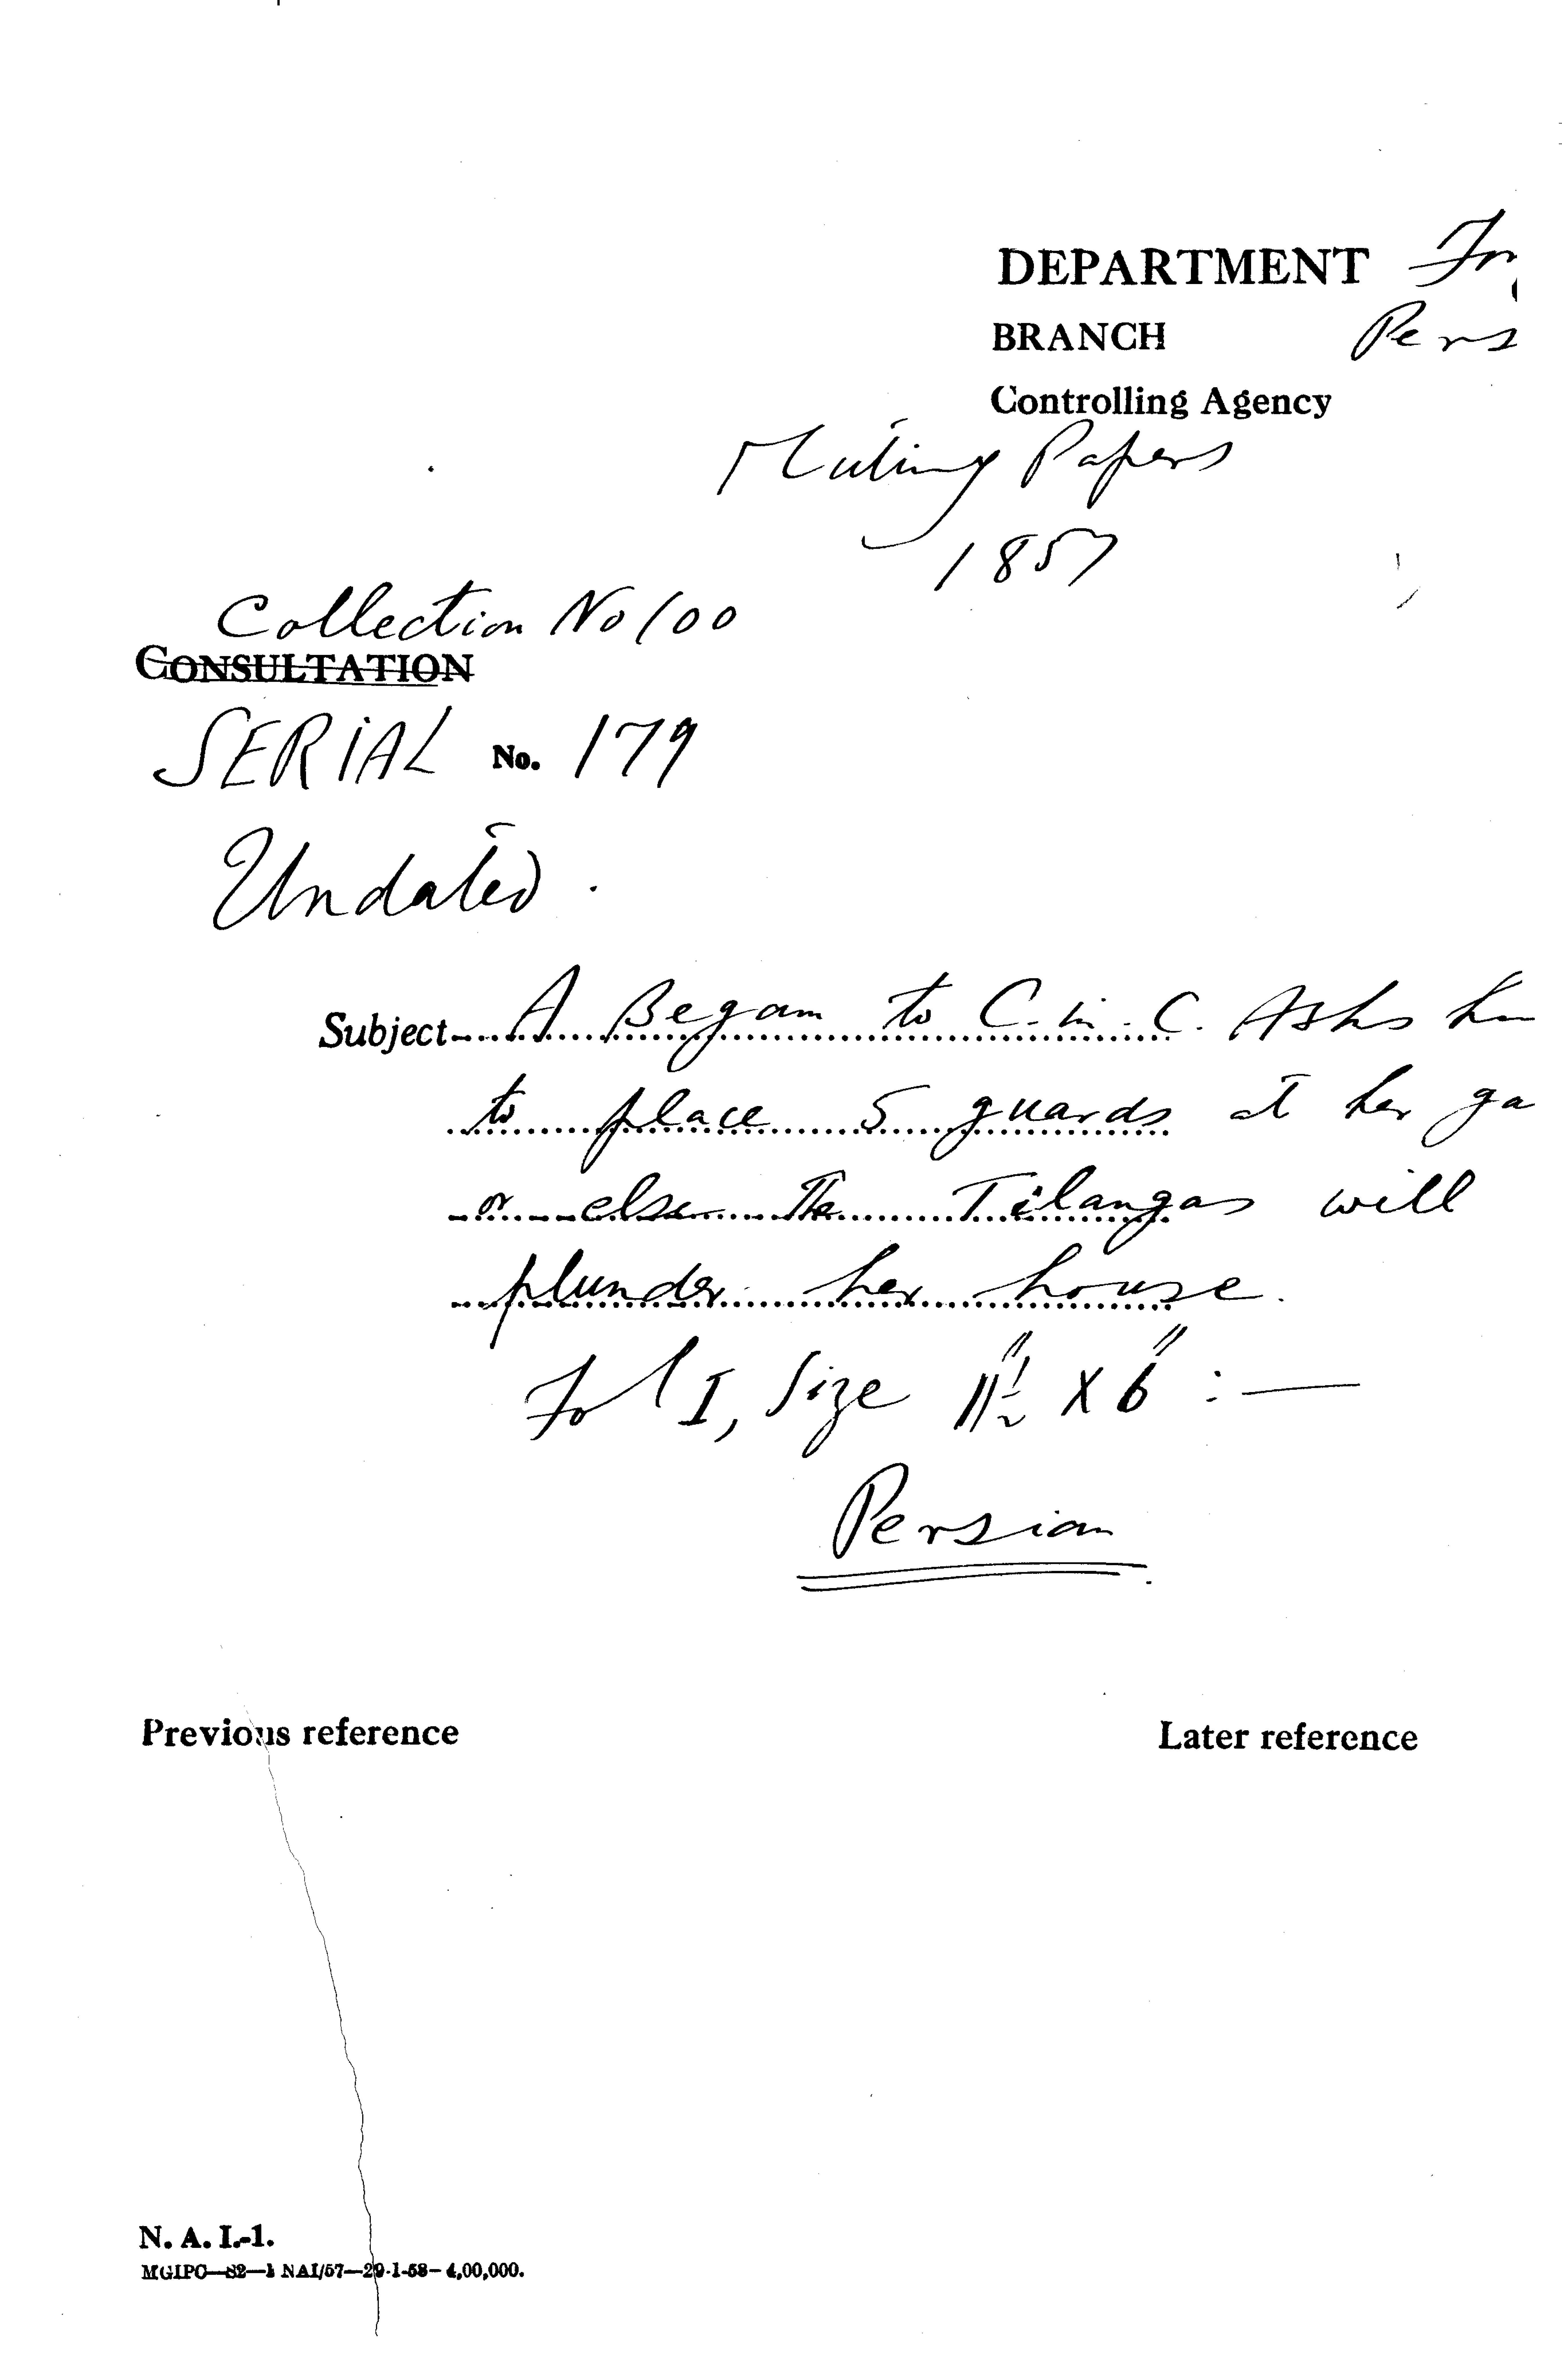 DEPARTMENT
BRANCH Pers
Controlling Agency
Mutiny Papers
1857
Collection No 100
CONSULTATION
SERIAL No. 179
Undated.
Subject- A Begam to C.in.C. Asks
to place 5 guards at her ga
or else The Tilangas will
plunder her house.
Fol I, Size 11½" x 6" :—
Persian
Previous reference
Later reference
N. A. I.-1.
MGIPC—S2—1 NAI/57—29-1-58—4,00,000.